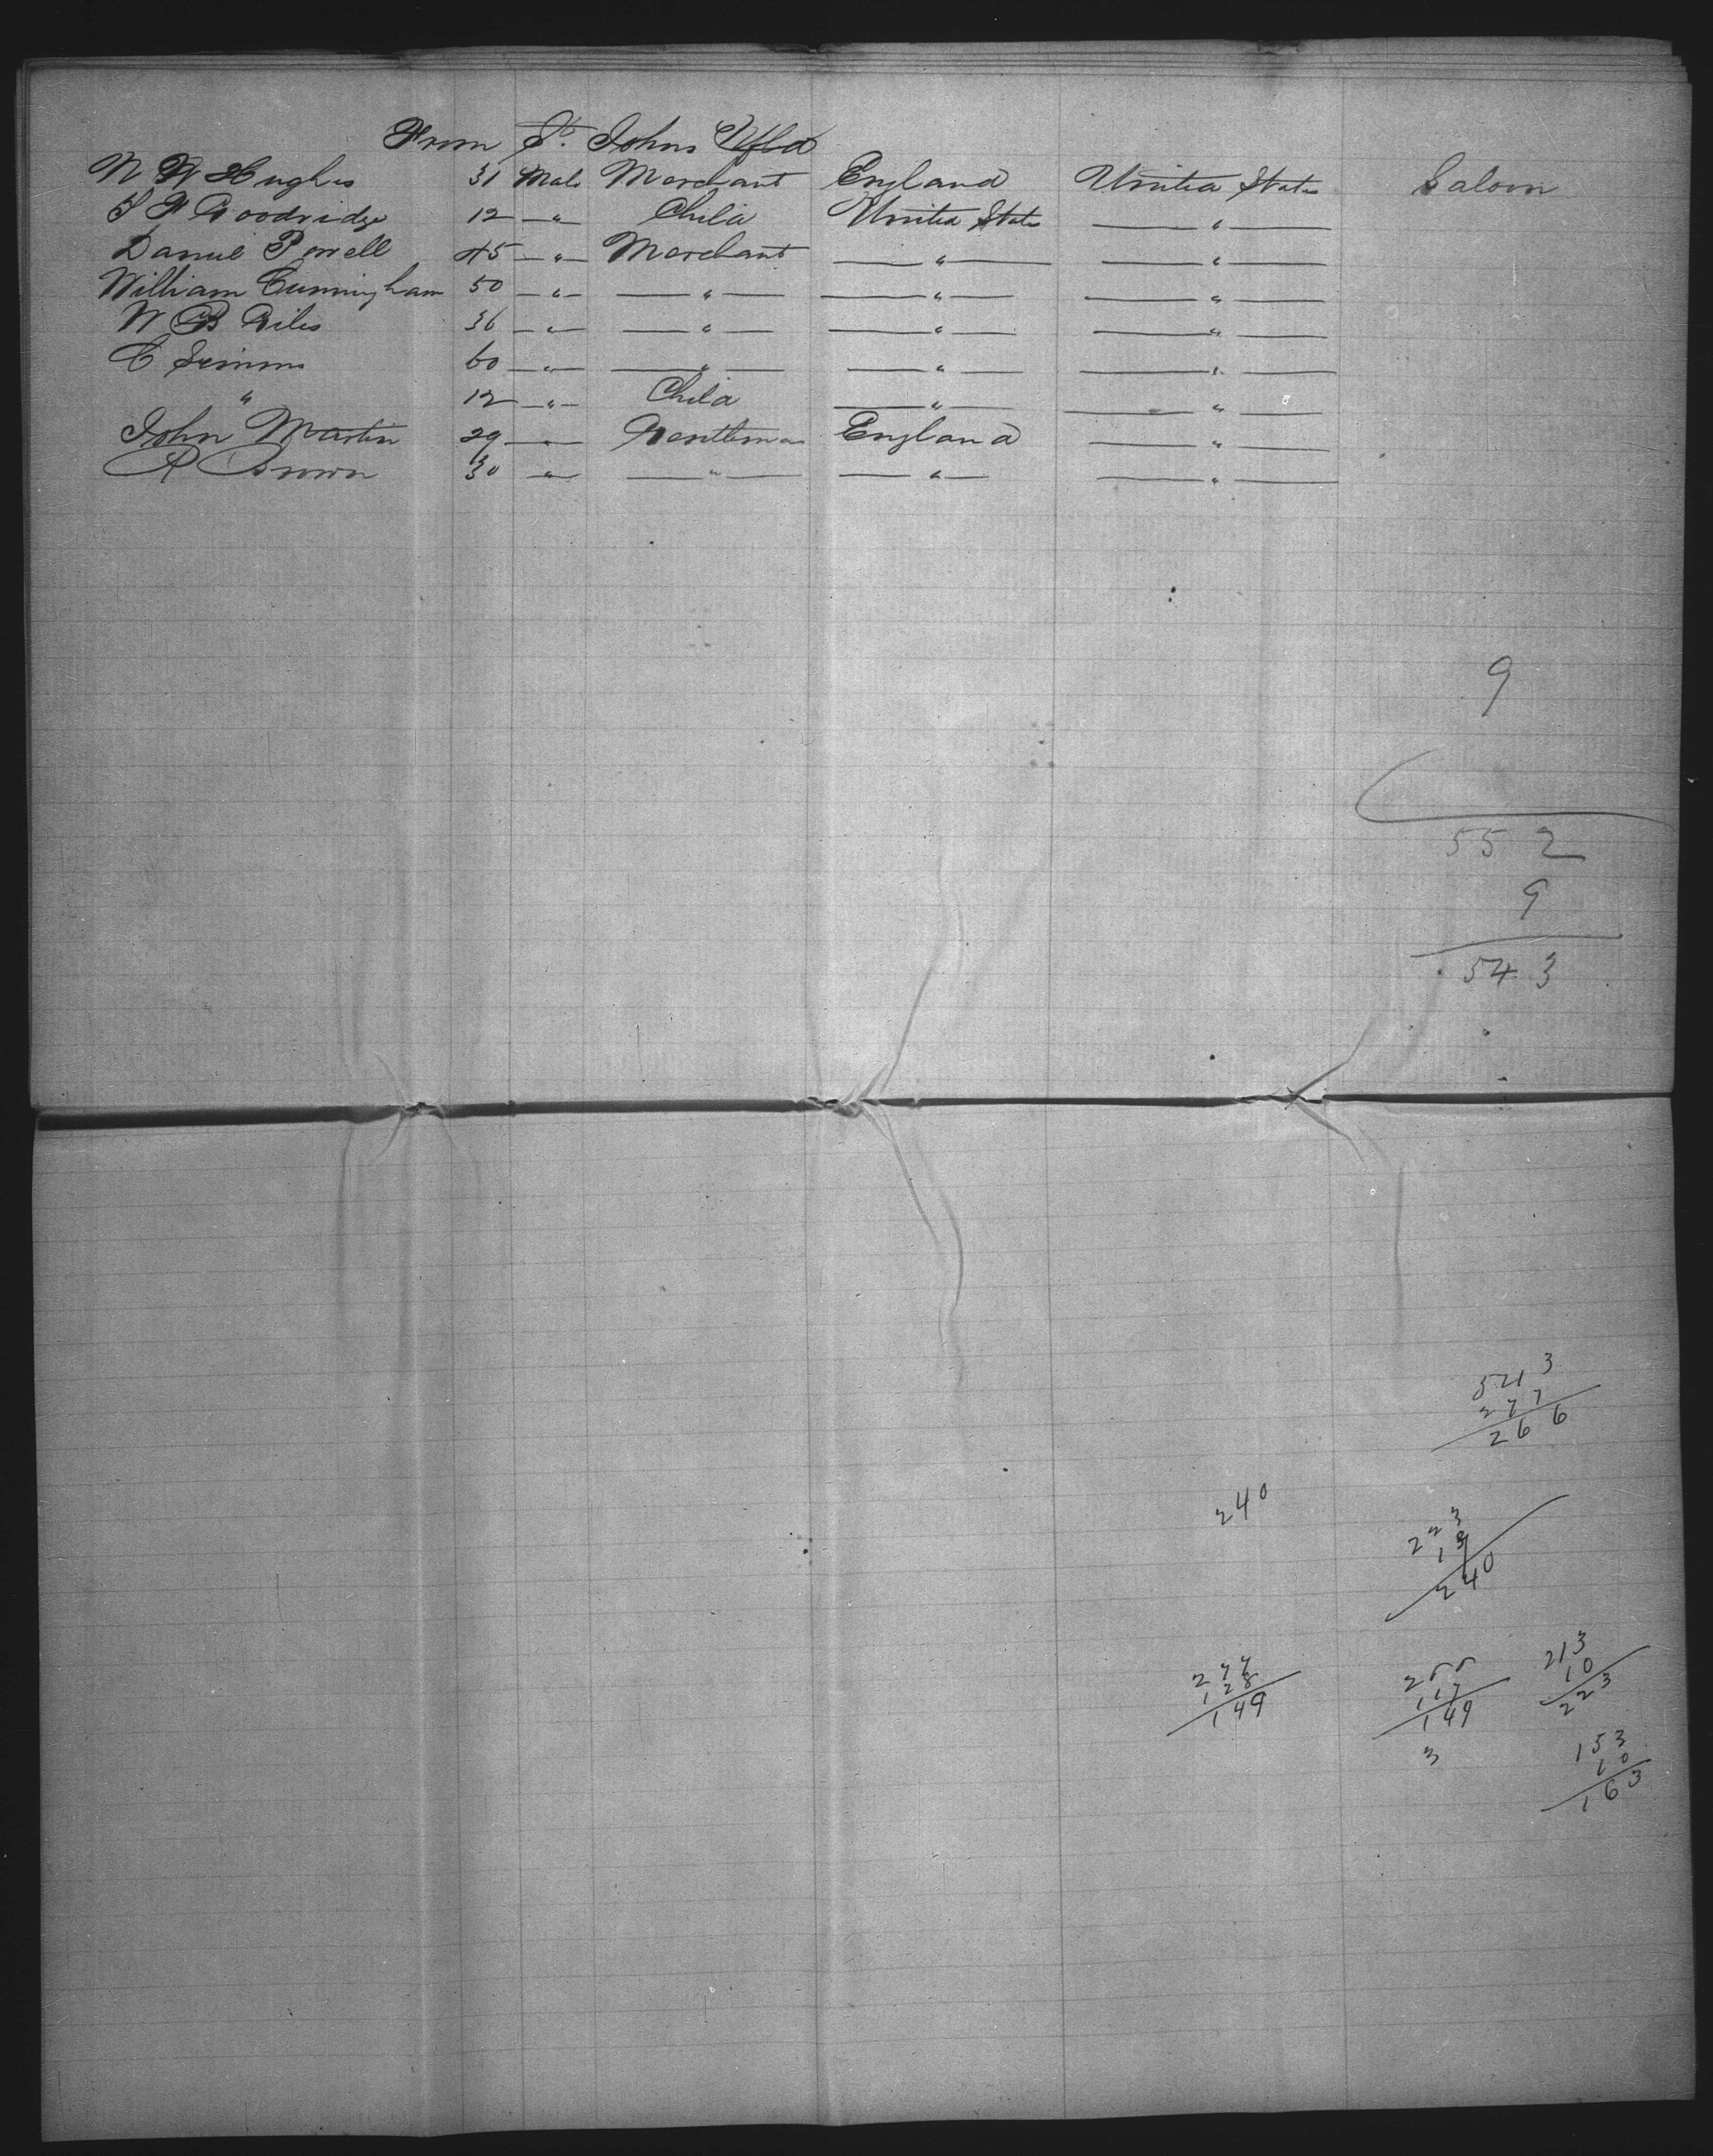 From St. Johns Nfld
N W Hughes 31 Male Merchant England United States Saloon
S F Goodridge 12 —"— Child United States —"—
Daniel Powell 45 —"— Merchant —"— —"—
William Cunningham 50 —"— —"— —"— —"—
W B Giles 36 —"— —"— —"— —"—
C Simms 60 —"— —"— —"— —"—
" 12 —"— Child —"— —"—
John Martin 29 —"— Gentleman England —"—
R Brown 30 —"— —"— —"— —"—
9
552
9
543
543
277
266
240
223
240
277
128
149
266
117
149
3
213
10
223
153
10
163